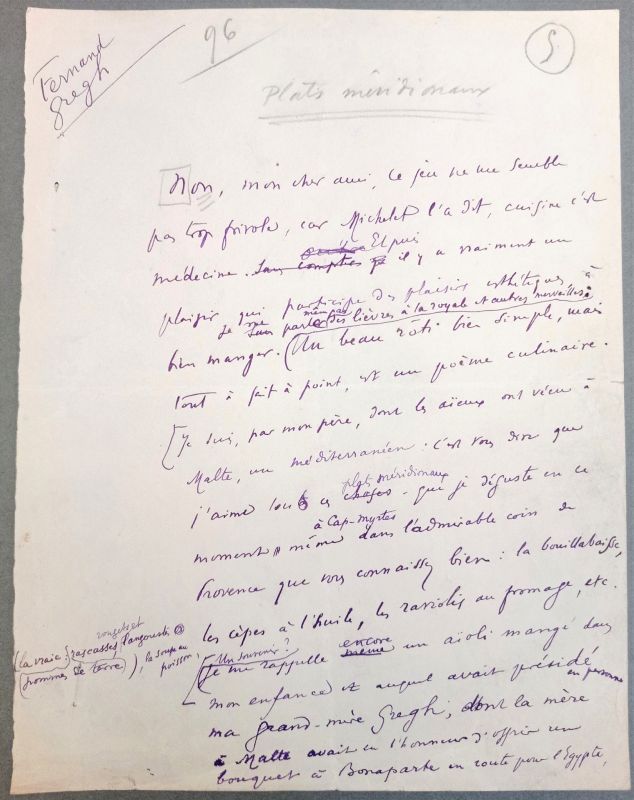 Fernand
Gregh
96
5
Plats méridionaux
Non, mon cher ami, ce jeu ne me semble
pas trop frivole, car Michelet l'a dit, cuisine c'est
médecine. Sans compter Et puis il y a vraiment un
plaisir qui participe des plaisirs esthétiques à
Je ne Sans parler même pas des lièvres à la royale et autres merveilles
bien manger. (Un beau rôti bien simple, mais
tout à fait à point, est un poème culinaire.
[Je suis, par mon père, dont les aïeux ont vécu à
Malte, un méditerranéen : c'est vous dire que
plats méridionaux
j'aime tous ces choses que je déguste en ce
à Cap-Myrtes
moment même dans l'admirable coin de
Provence que vous connaissez bien : la bouillabaisse,
les cèpes à l'huile, les raviolis au fromage, etc.
rougets et
(la vraie : rascasses langouste
pommes de terre), la soupe au
poisson,
Un souvenir ?
Je me rappelle même encore un aïoli mangé dans
mon enfance et auquel avait présidé
en personne
ma grand-mère Gregh, dont la mère
à Malte avait eu l'honneur d'offrir un
bouquet à Bonaparte en route pour l'Egypte,